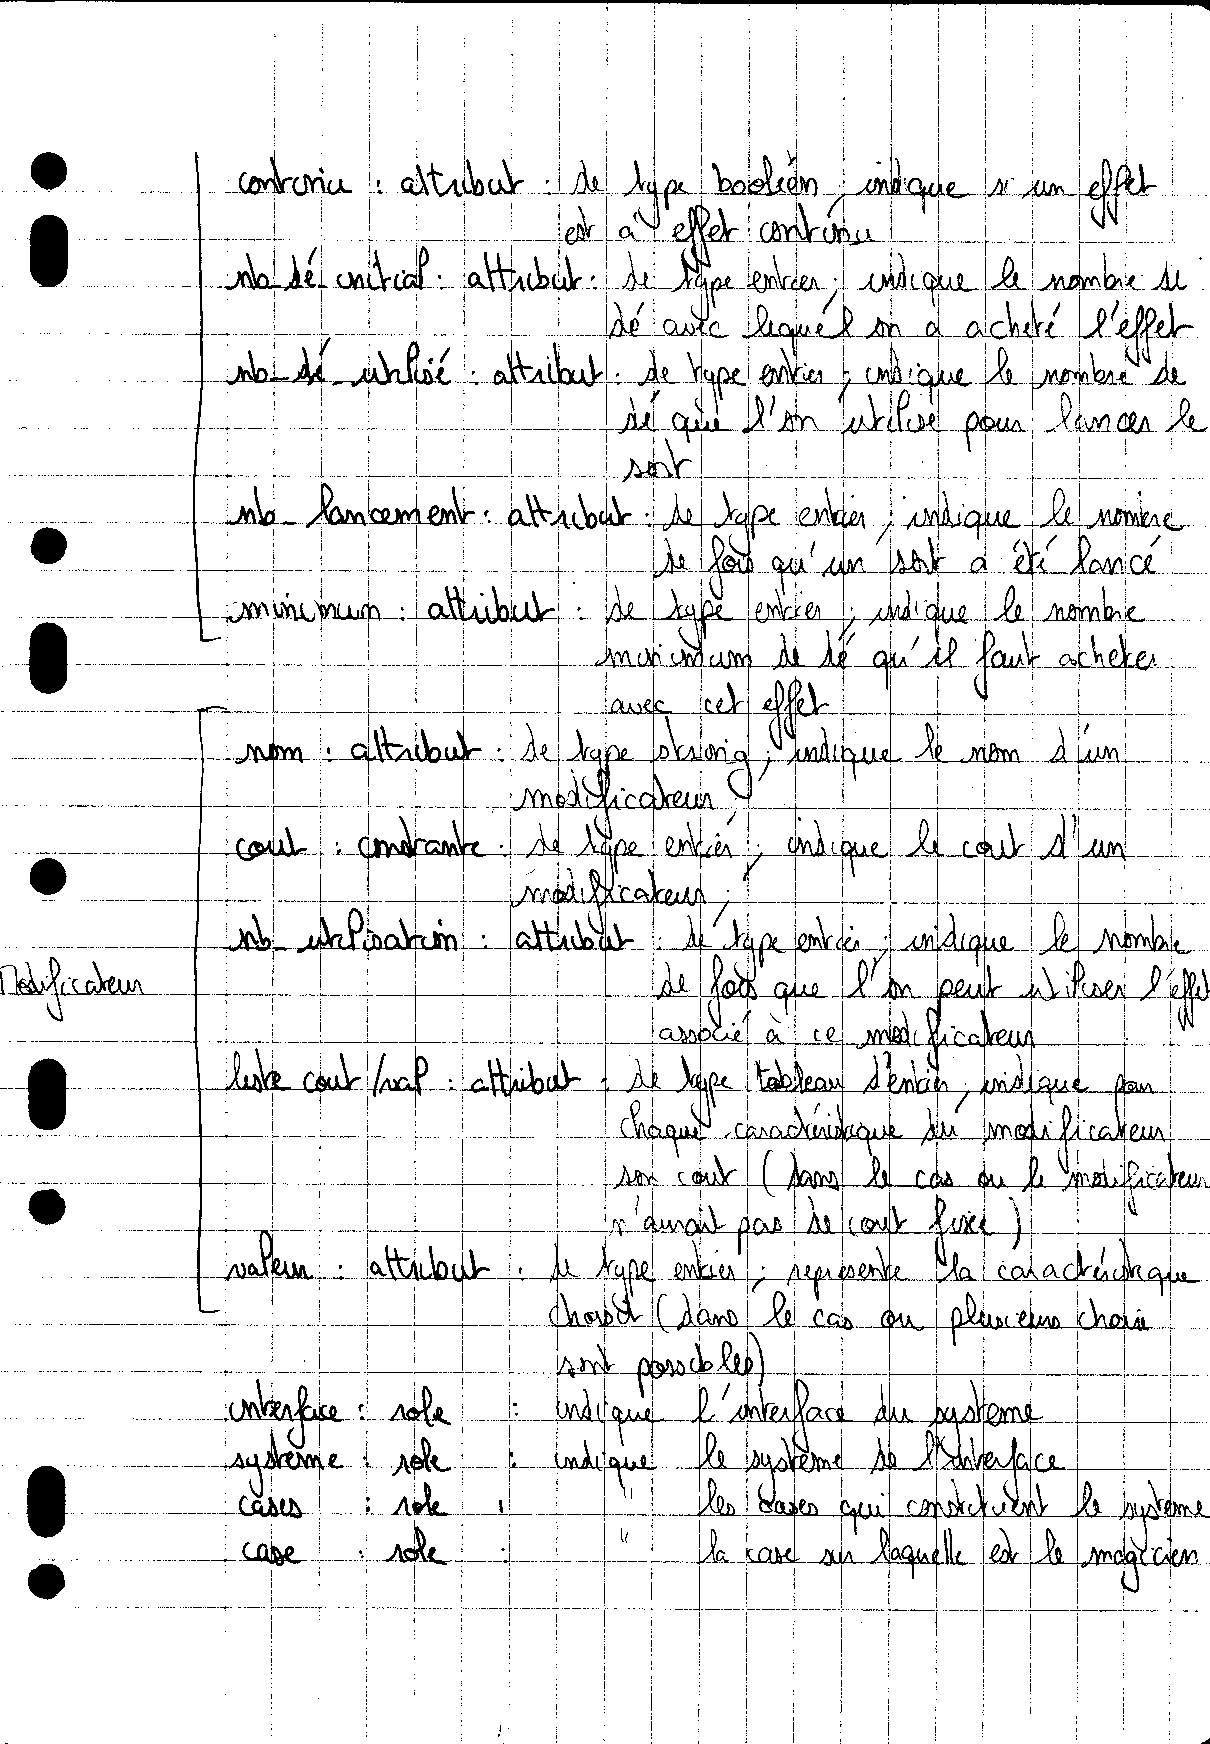 continu : attribut : de type booléen ; indique si un effet
est à effet continu
nb_dé_initial : attribut : de type entier ; indique le nombre de
dé avec lequel on a acheté l'effet
nb_dé_utilisé : attribut : de type entier ; indique le nombre de
dé que l'on utilise pour lancer le
sort
nb_lancement : attribut : de type entier ; indique le nombre
de fois qu'un sort a été lancé
minimum : attribut : de type entier ; indique le nombre
minimum de dé qu'il faut acheter
avec cet effet
nom : attribut : de type string ; indique le nom d'un
modificateur ;
cout : contrainte : de type entier ; indique le cout d'un
modificateur ;
nb_utilisation : attribut : de type entier ; indique le nombre
Modificateur
de fois que l'on peut utiliser l'effet
associé à ce modificateur
liste cout/val : attribut : de type tableau d'entier ; indique pour
chaque caractéristique du modificateur
son cout (dans le cas ou le modificateur
n'aurait pas de cout fixé)
valeur : attribut : de type entier ; représente la caractéristique
choisit (dans le cas ou plusieurs choix
sont possibles)
interface : role : indique l'interface du système
système : role : indique le système de l'interface
cases : role : " les cases qui constituent le système
case : role : " la case sur laquelle est le magicien